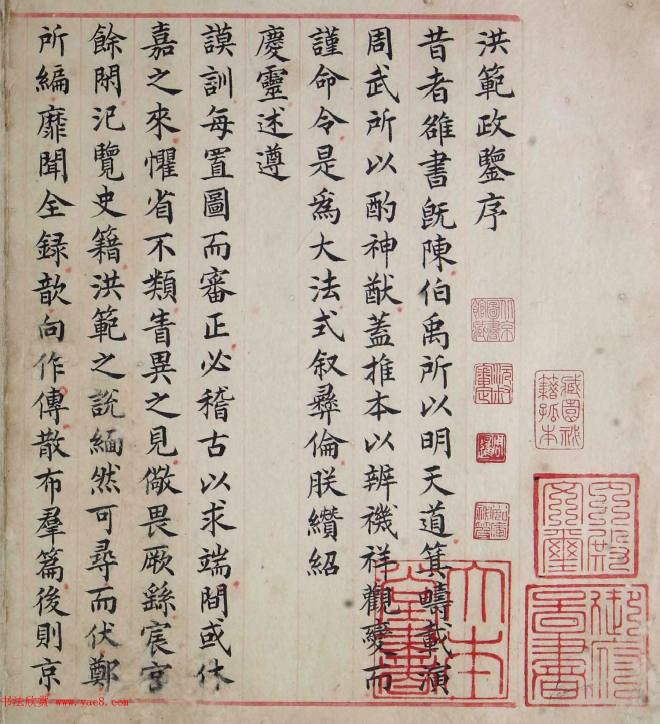 洪範政鑒序
昔者雒書旣陳伯禹所以明天道箕疇載演
周武所以酌神猷蓋推本以辨禨祥觀變而
謹命令是爲大法式叙彝倫朕纘紹
慶靈述遵
謨訓每置圖而審正必稽古以求端間或休
嘉之來懼省不類眚異之見儆畏厥繇宸宫
餘閑氾覽史籍洪範之說緬然可尋而伏鄭
所編靡聞全録歆向作傳散布羣篇後則京
書法欣賞 www.yac8.com